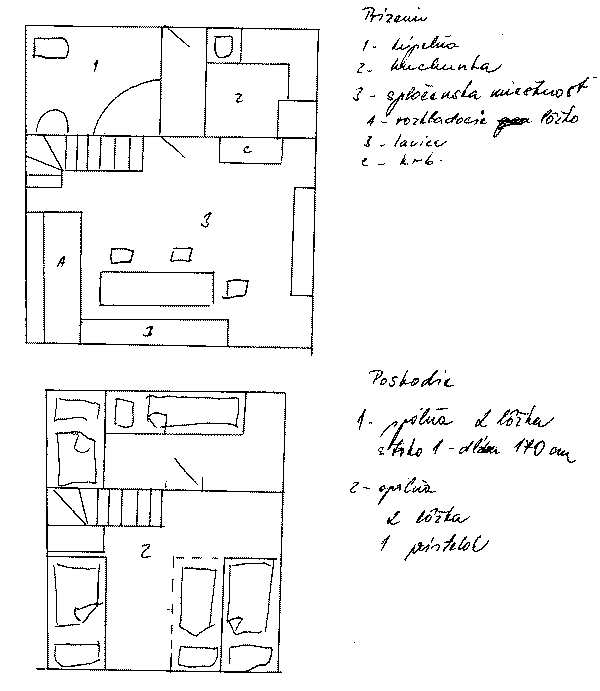 Prízemie
1 - kúpeľňa
2 - kuchynka
3 - spločenská miestnosť
A - rozkladacie lôžko
B - lavica
C - krb.
1
2
C
3
A
B
Poschodie
1. spálňa 2 lôžka
z toho 1 - dĺžka 170 cm
2 - spálňa
2 lôžka
1 prístelok
2